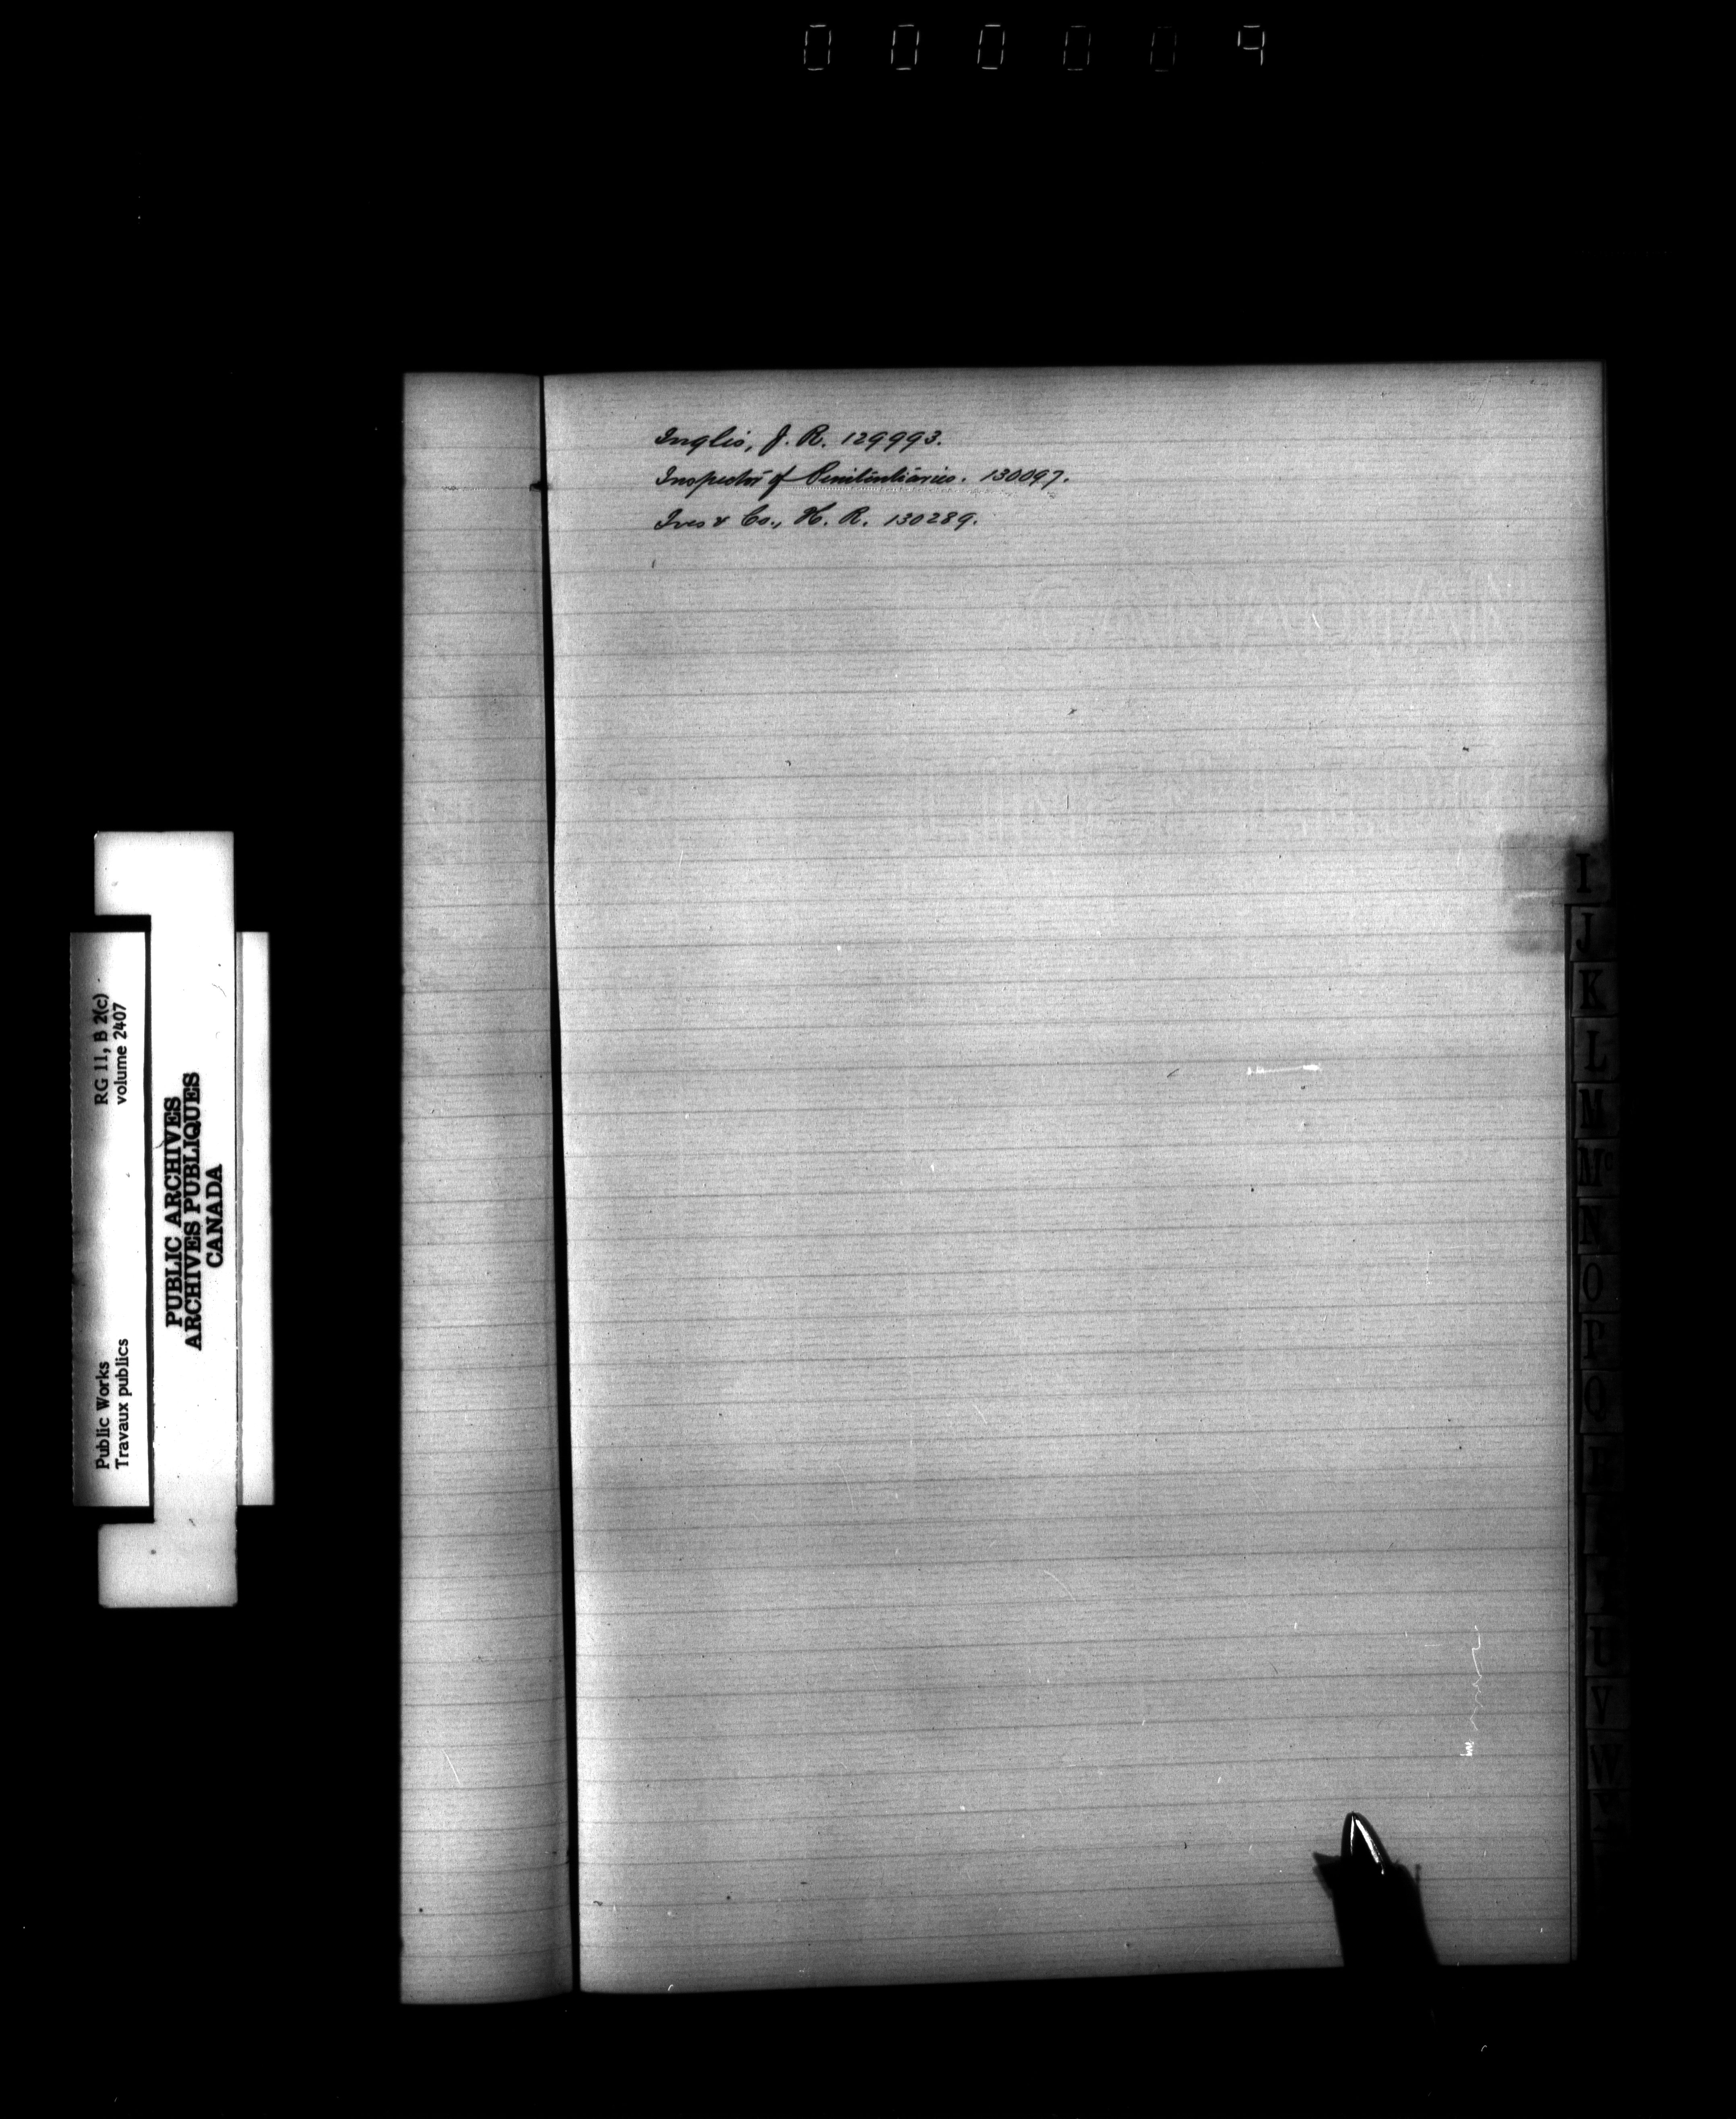 000009
Inglis, J. R. 129993.
Inspector of Penitentiaries. 130097.
Ives & Co., H. R. 130289.
I
J
K
L
M
Mc
N
O
P
Q
U
V
W
RG 11, B 2(c)
volume 2407
Public Works
Travaux publics
PUBLIC ARCHIVES
ARCHIVES PUBLIQUES
CANADA